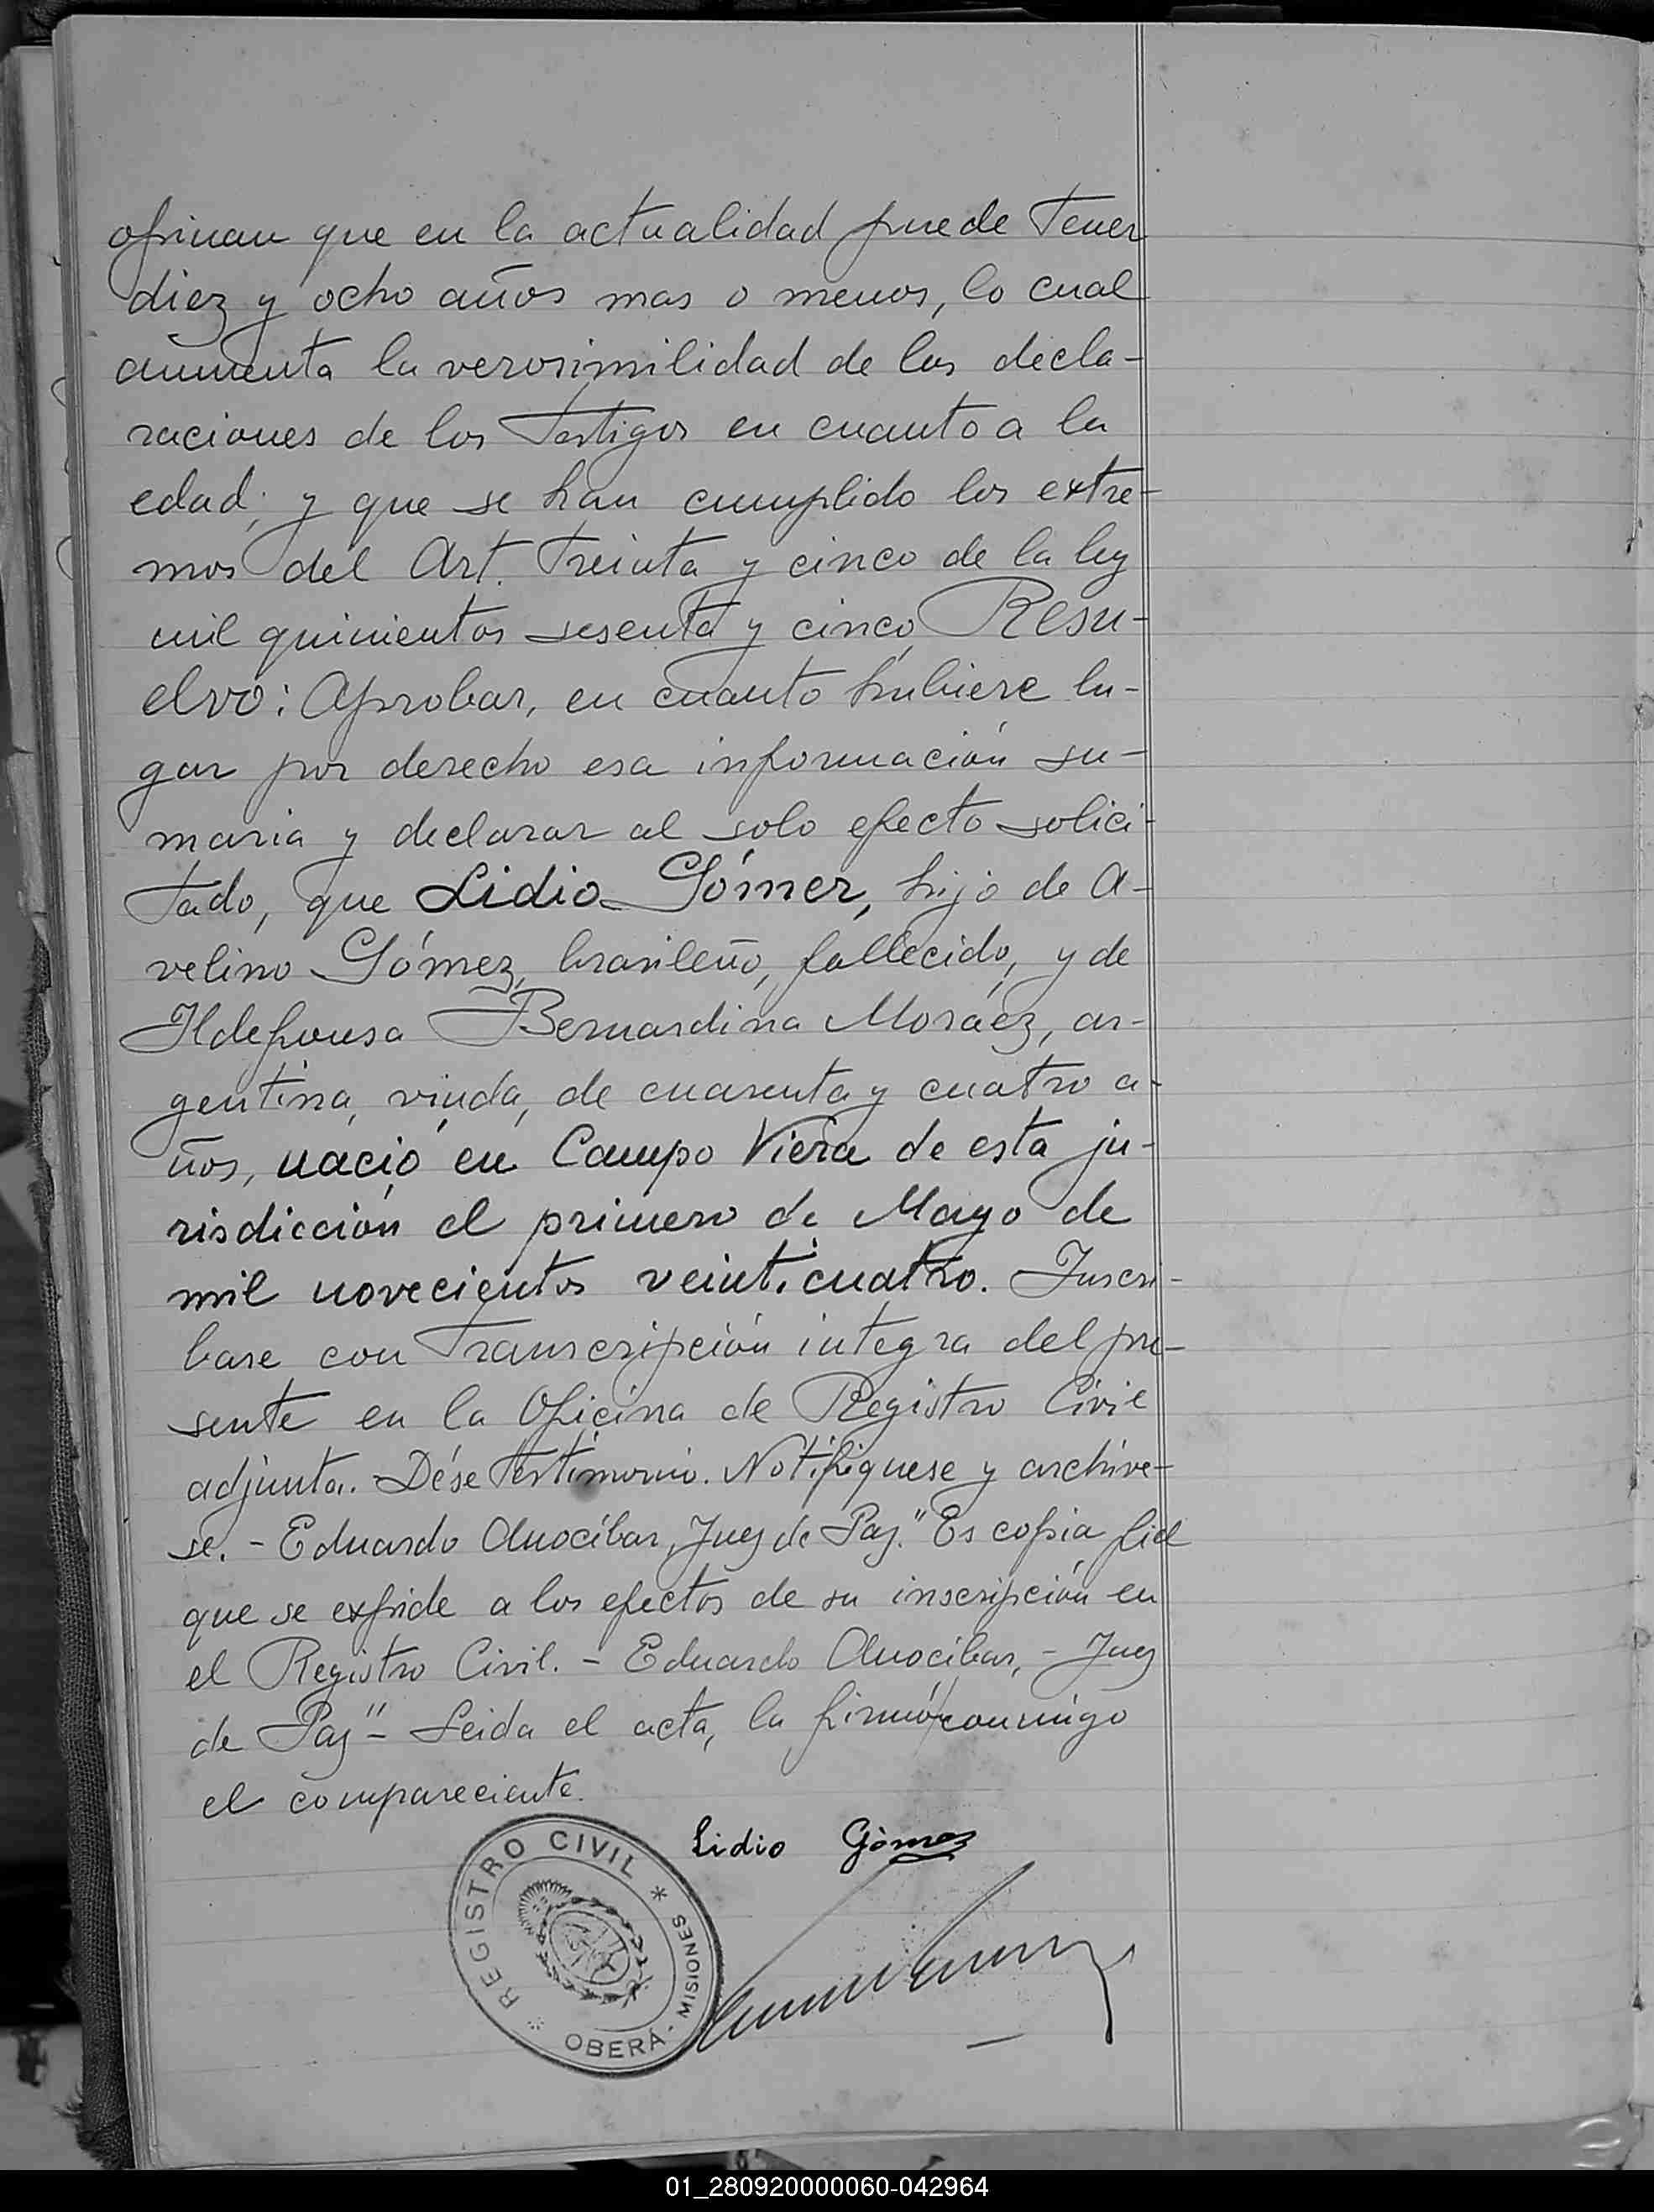 opinan que en la actualidad puede tener
diez y ocho años mas o menos, lo cual
aumenta la verosimilidad de las decla-
raciones de los testigos en cuanto a la
edad; y que se han cumplido los extre-
mos del Art. treinta y cinco de la ley
mil quinientos sesenta y cinco, Resu-
elvo: Aprobar, en cuanto hubiere lu-
gar por derecho esa información su-
maria y declarar al solo efecto solici-
tado, que Lidio Gómez, hijo de A-
velino Gómez, brasileño, fallecido, y de
Ildefonsa Bernardina Moráez, ar-
gentina, viuda, de cuarenta y cuatro a-
ños, nació en Campo Viera de esta ju-
risdicción el primero de Mayo de
mil novecientos veinticuatro. Inscrí-
base con transcripción integra del pre-
sente en la Oficina de Registro Civil
adjunta. Dése testimonio. Notifíquese y archíve-
se. - Eduardo Anocíbar, Juez de Paz." Es copia fiel
que se expide a los efectos de su inscripción en
el Registro Civil. - Eduardo Anocíbar, - Juez
de Paz" - Leida el acta, la firmó conmigo
el compareciente.
Lidio Gómez
REGISTRO CIVIL * MISIONES
OBERÁ -
01_280920000060-042964